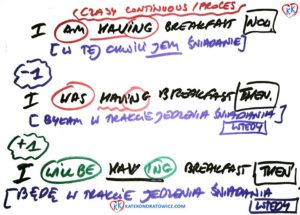 (CZASY CONTINUOUS / PROCES)
KK
I AM HAVING BREAKFAST NOW
[W TEJ CHWILI JEM ŚNIADANIE]
-1
I WAS HAVING BREAKFAST THEN.
[BYŁAM W TRAKCIE JEDZENIA ŚNIADANIA WTEDY]
+1
I WILL BE HAVING BREAKFAST THEN
[BĘDĘ W TRAKCIE JEDZENIA ŚNIADANIA WTEDY
KK KATEKONDRATOWICZ.COM KK